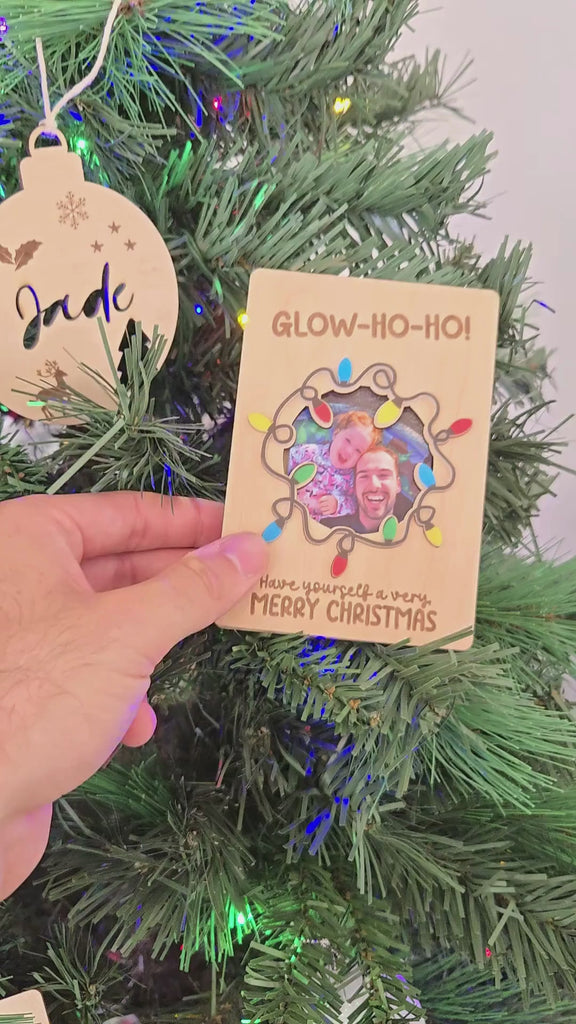 Jade
GLOW-HO-HO!
Have yourself a very
MERRY CHRISTMAS